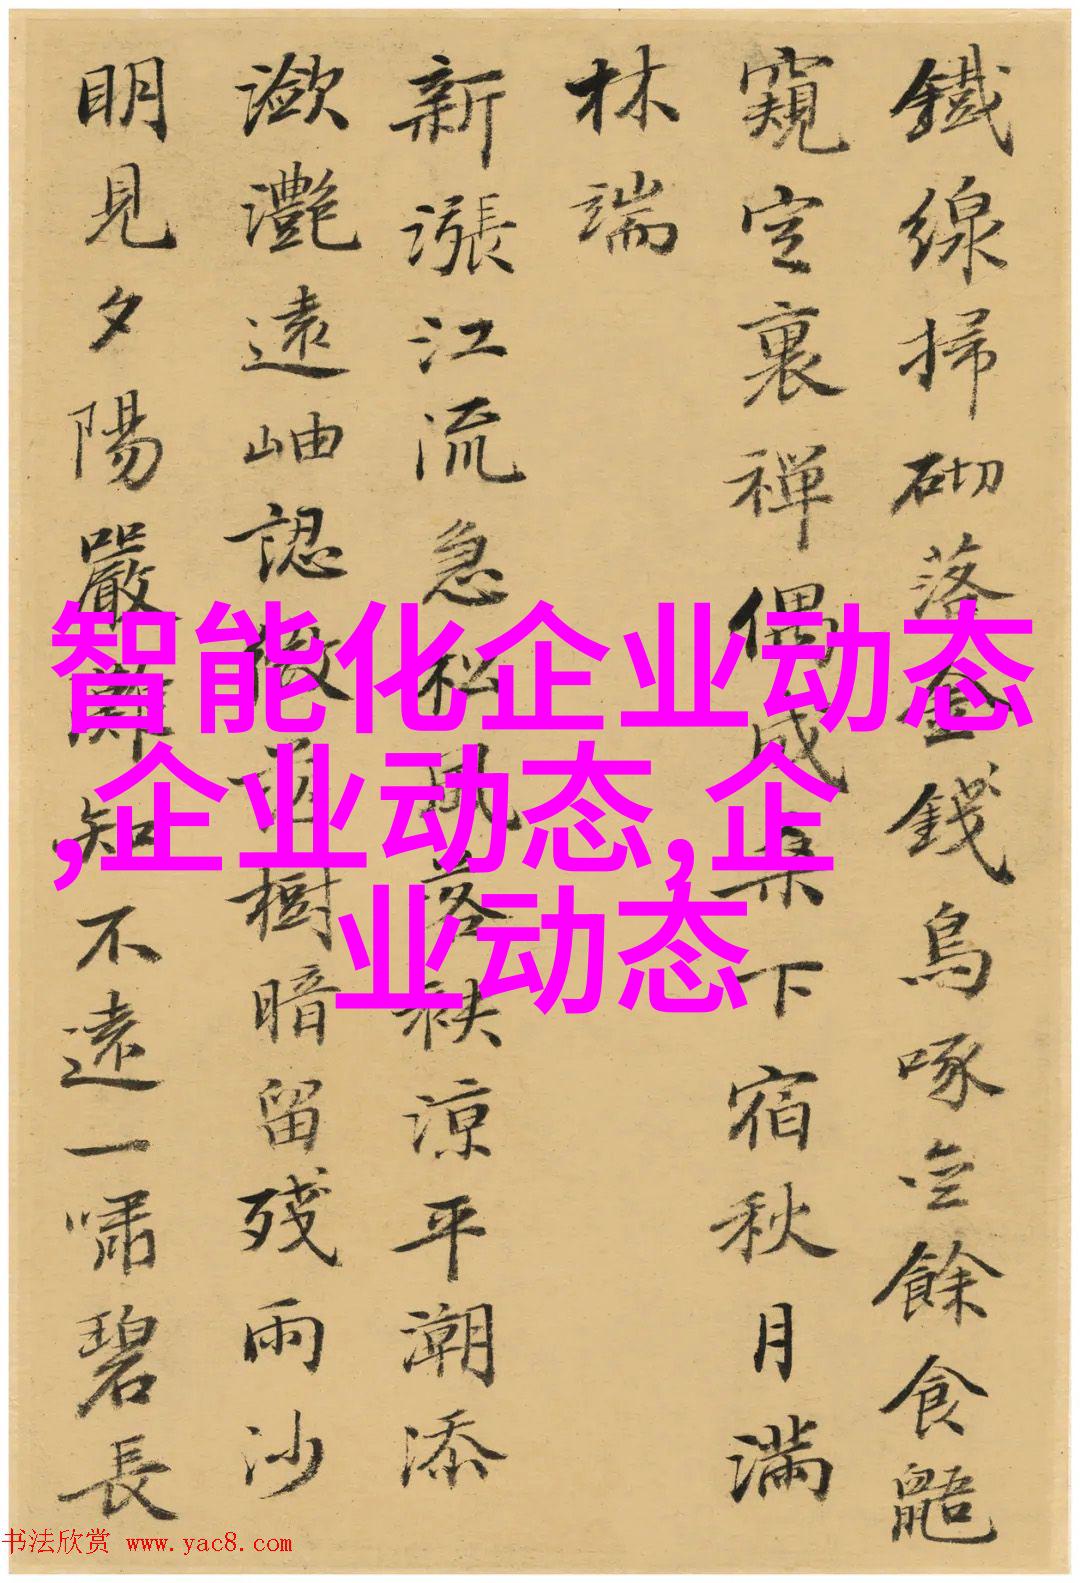 鐵線掃砌落金錢烏啄餘食鼯
窺定裏禅偶成桒下宿秋月滿
林端
新漲江流急松風落袂涼平潮添
瀲灩遠岫認微茫樹暗留殘雨沙
明見夕陽嚴灘知不遠一嘯碧長
智能化企业动态
,企业动态,企
业动态
书法欣赏 www.yac8.com